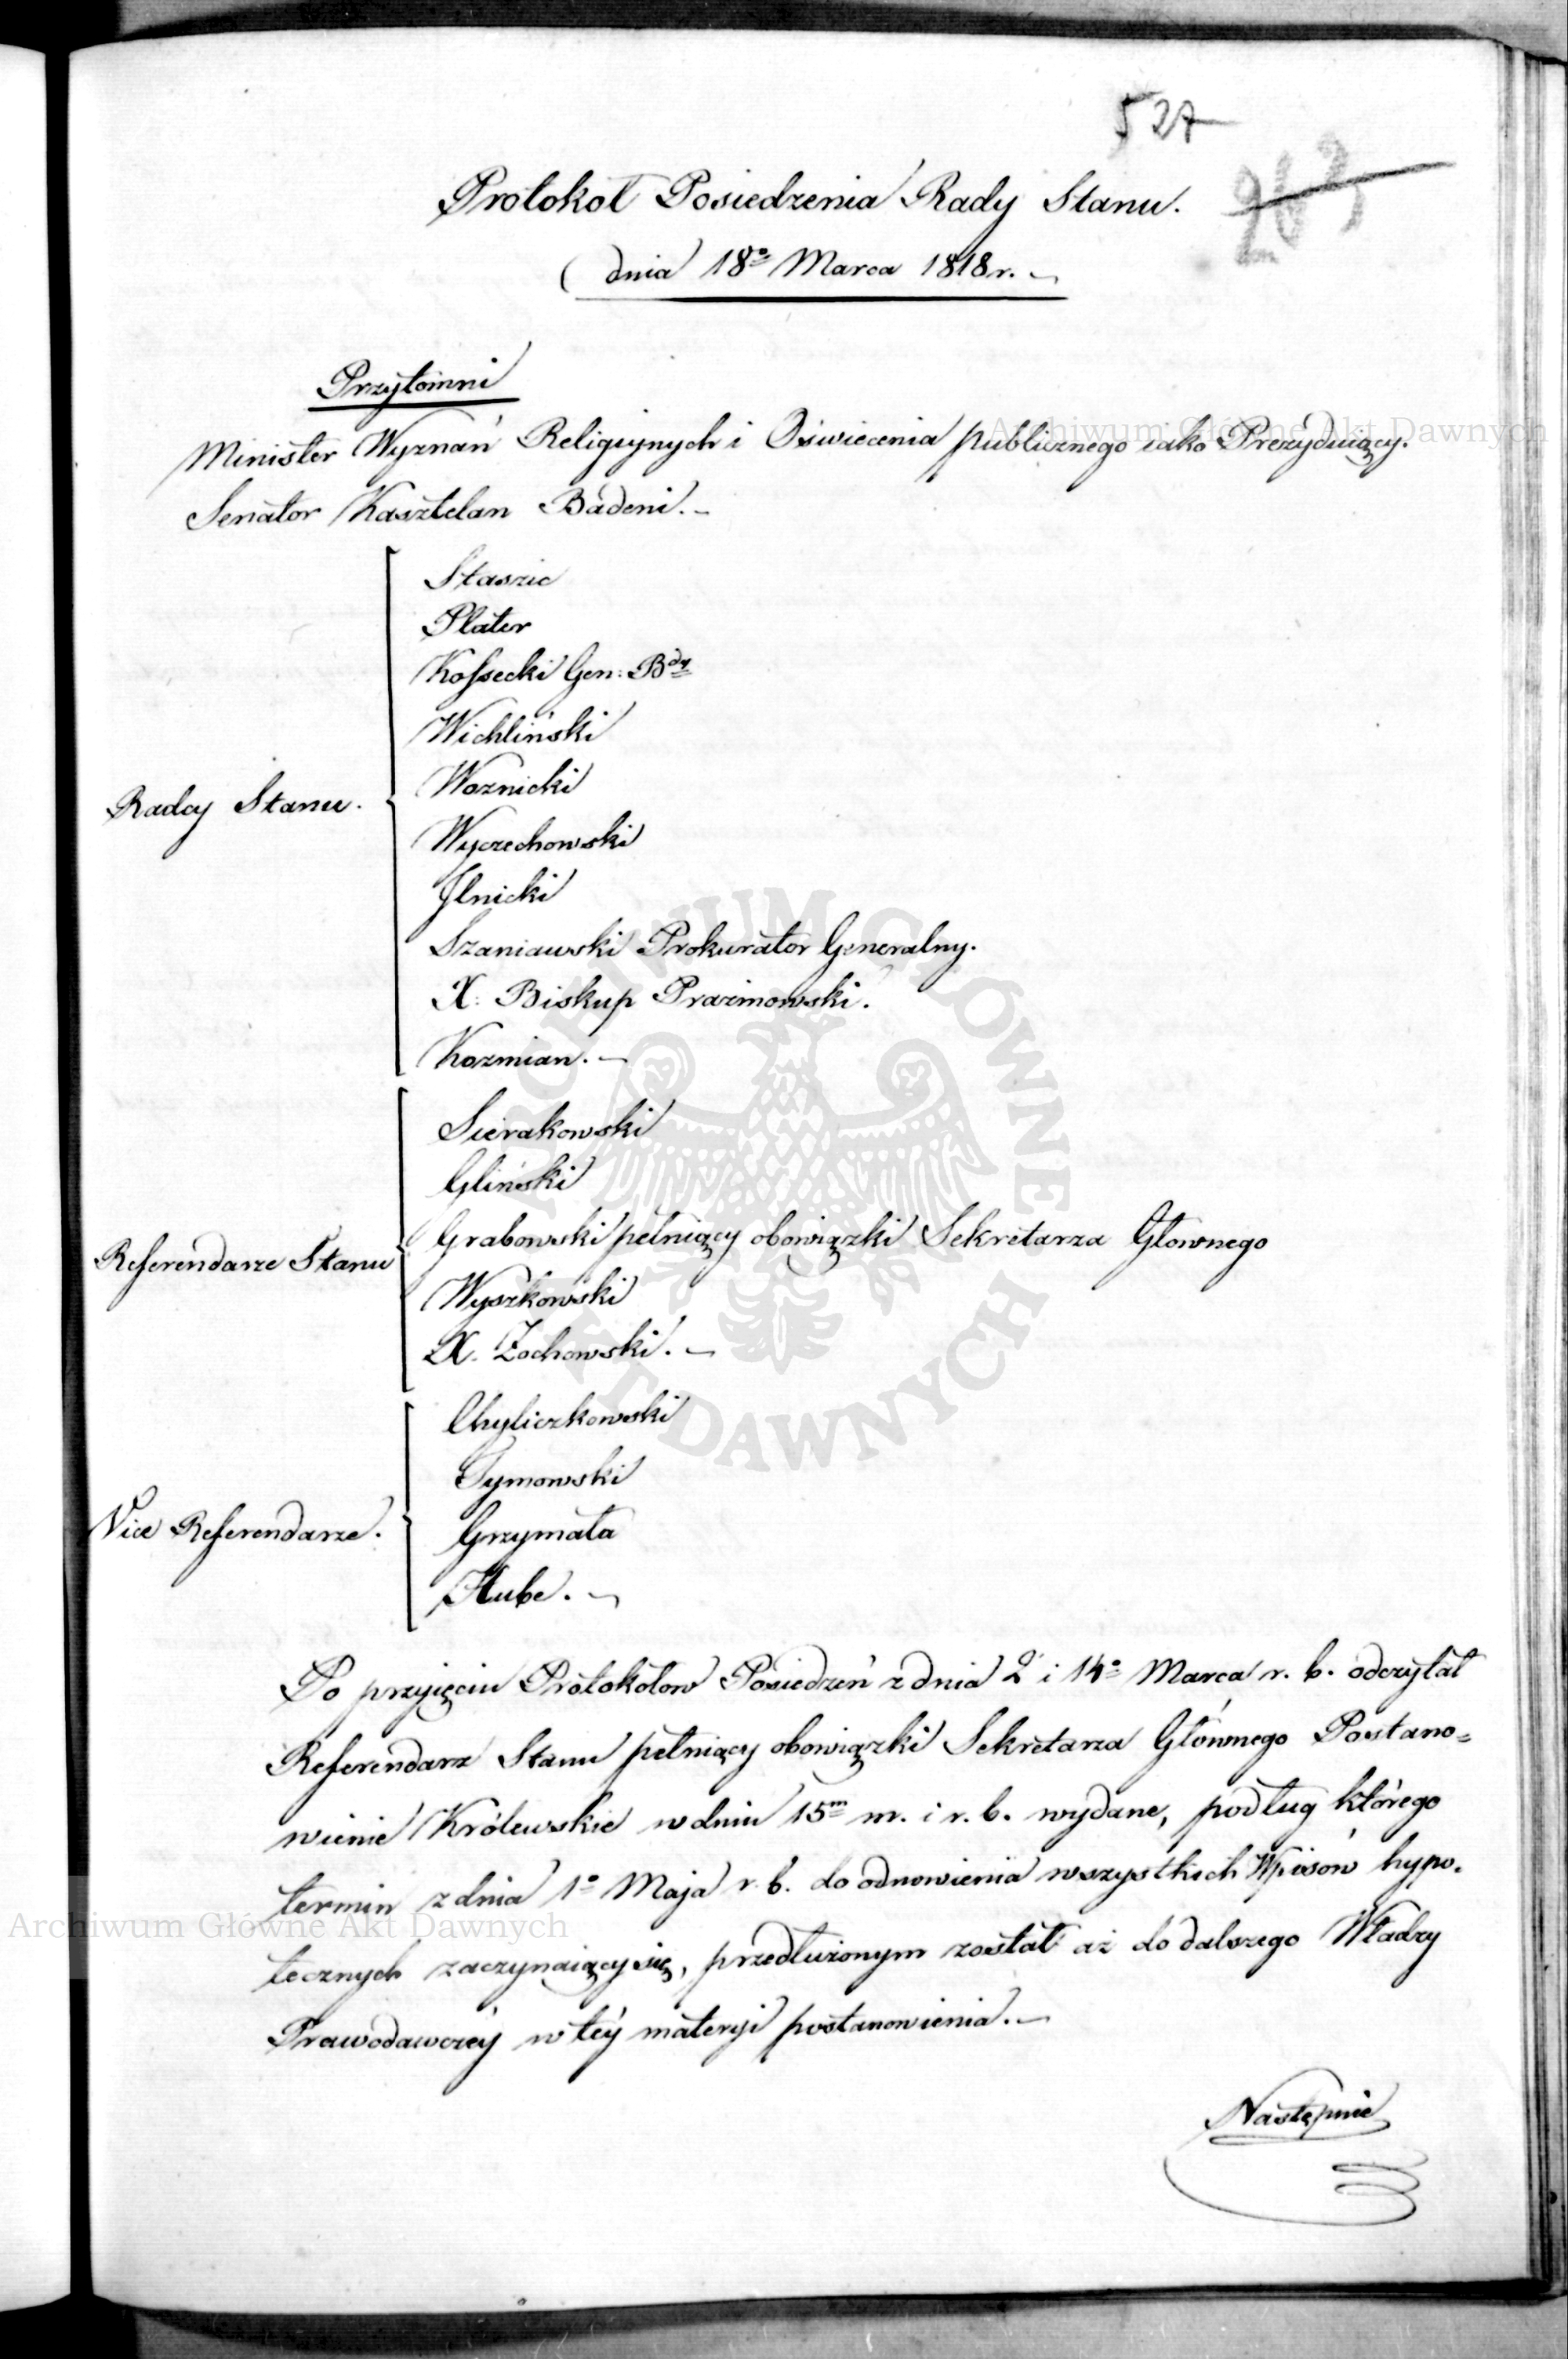 527
Protokół Posiedzenia Rady Stanu.
dnia 18º Marca 1818 r.
Przytomni
Minister Wyznań Religijnych i Oświecenia publicznego iako Prezyduiący.
Senator Kasztelan Badeni.
Radcy Stanu.
Staszic
Plater
Kossecki Gen: Bdy
Wichliński
Woznicki
Wyczechowski
Ilnicki
Szaniawski Prokurator Generalny.
X. Biskup Prazmowski.
Kozmian.
Referendarze Stanu
Sierakowski
Gliński
Grabowski pełniący obowiązki Sekretarza Głownego
Wyszkowski
X. Zochowski.
Vice Referendarze.
Chyliczkowski
Tymowski
Grzymała
Hube.
Po przyięciu Protokołow Posiedzeń z dnia 2 i 14º Marca r. b. odczytał
Referendarz Stanu pełniący obowiązki Sekretarza Głównego Postano=
wienie Królewskie w dniu 15m m. i r. b. wydane, podług którego
termin z dnia 1º Maja r. b. do odnowienia wszystkich Wpisów hypo=
tecznych zaczynaiący się, przedłużonym został aż do dalszego Władzy
Prawodawczéy w téy materyi postanowienia.
Następnie
Archiwum Główne Akt Dawnych
Archiwum Główne Akt Dawnych
ARCHIWUM GŁÓWNE AKT DAWNYCH